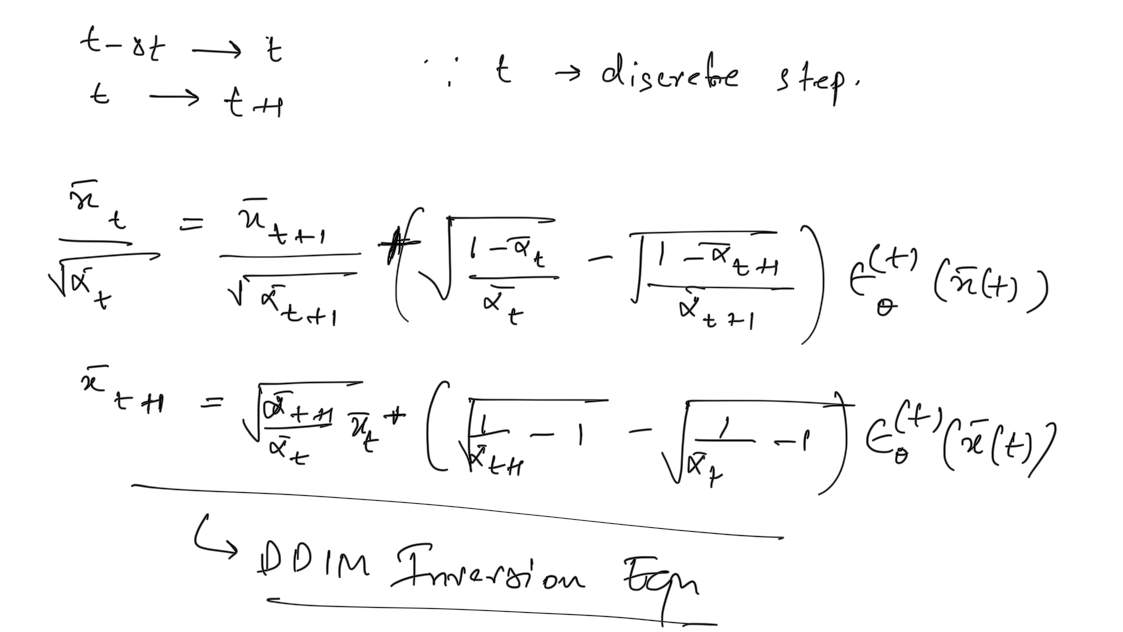 t-δt → t
∵ t → discrete step.
t → t+1
x̄_t / √ᾱ_t = x̄_{t+1} / √ᾱ_{t+1} + ( √((1-ᾱ_t) / ᾱ_t) - √((1-ᾱ_{t+1}) / ᾱ_{t+1}) ) ϵ_θ^{(t)} (x̄(t))
x̄_{t+1} = √(ᾱ_{t+1} / ᾱ_t) x̄_t + ( √(1/ᾱ_{t+1} - 1) - √(1/ᾱ_t - 1) ) ϵ_θ^{(t)} (x̄(t))
↳ DDIM Inversion Eqn